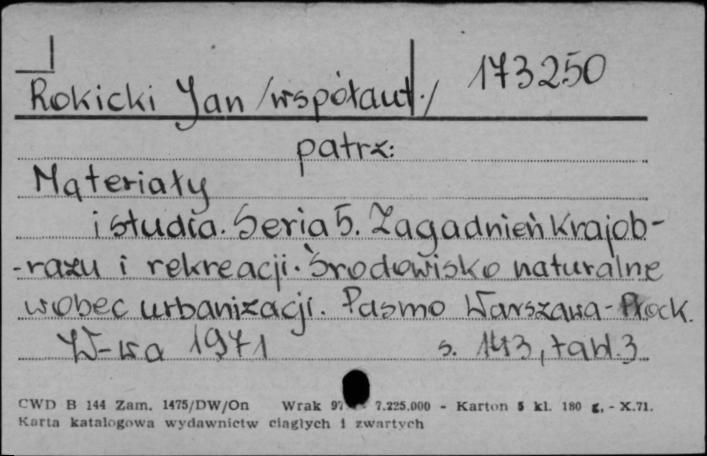 Rokicki Jan /współaut./ 173250
patrz:
Materiały
i studia. Seria 5. Zagadnień Krajob-
-razu i rekreacji. Środowisko naturalne
wobec urbanizacji. Pasmo Warszawa-Płock.
W-wa 1971 s. 143, tabl. 3
CWD B 144 Zam. 1475/DW/On Wrak 7.225.000 - Karton 5 kl. 180 g. - X.71.
Karta katalogowa wydawnictw ciągłych i zwartych